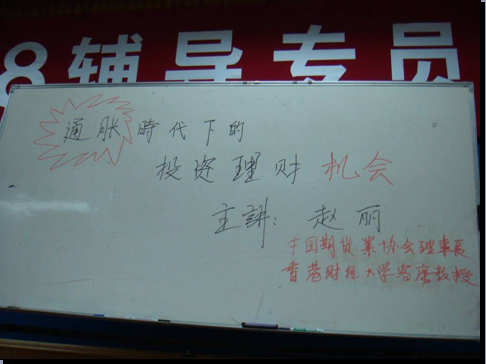 8辅导专员
通胀時代下的
投资理财机会
主講：赵丽
中国期货業协会理事長
香港财经大学客座教授